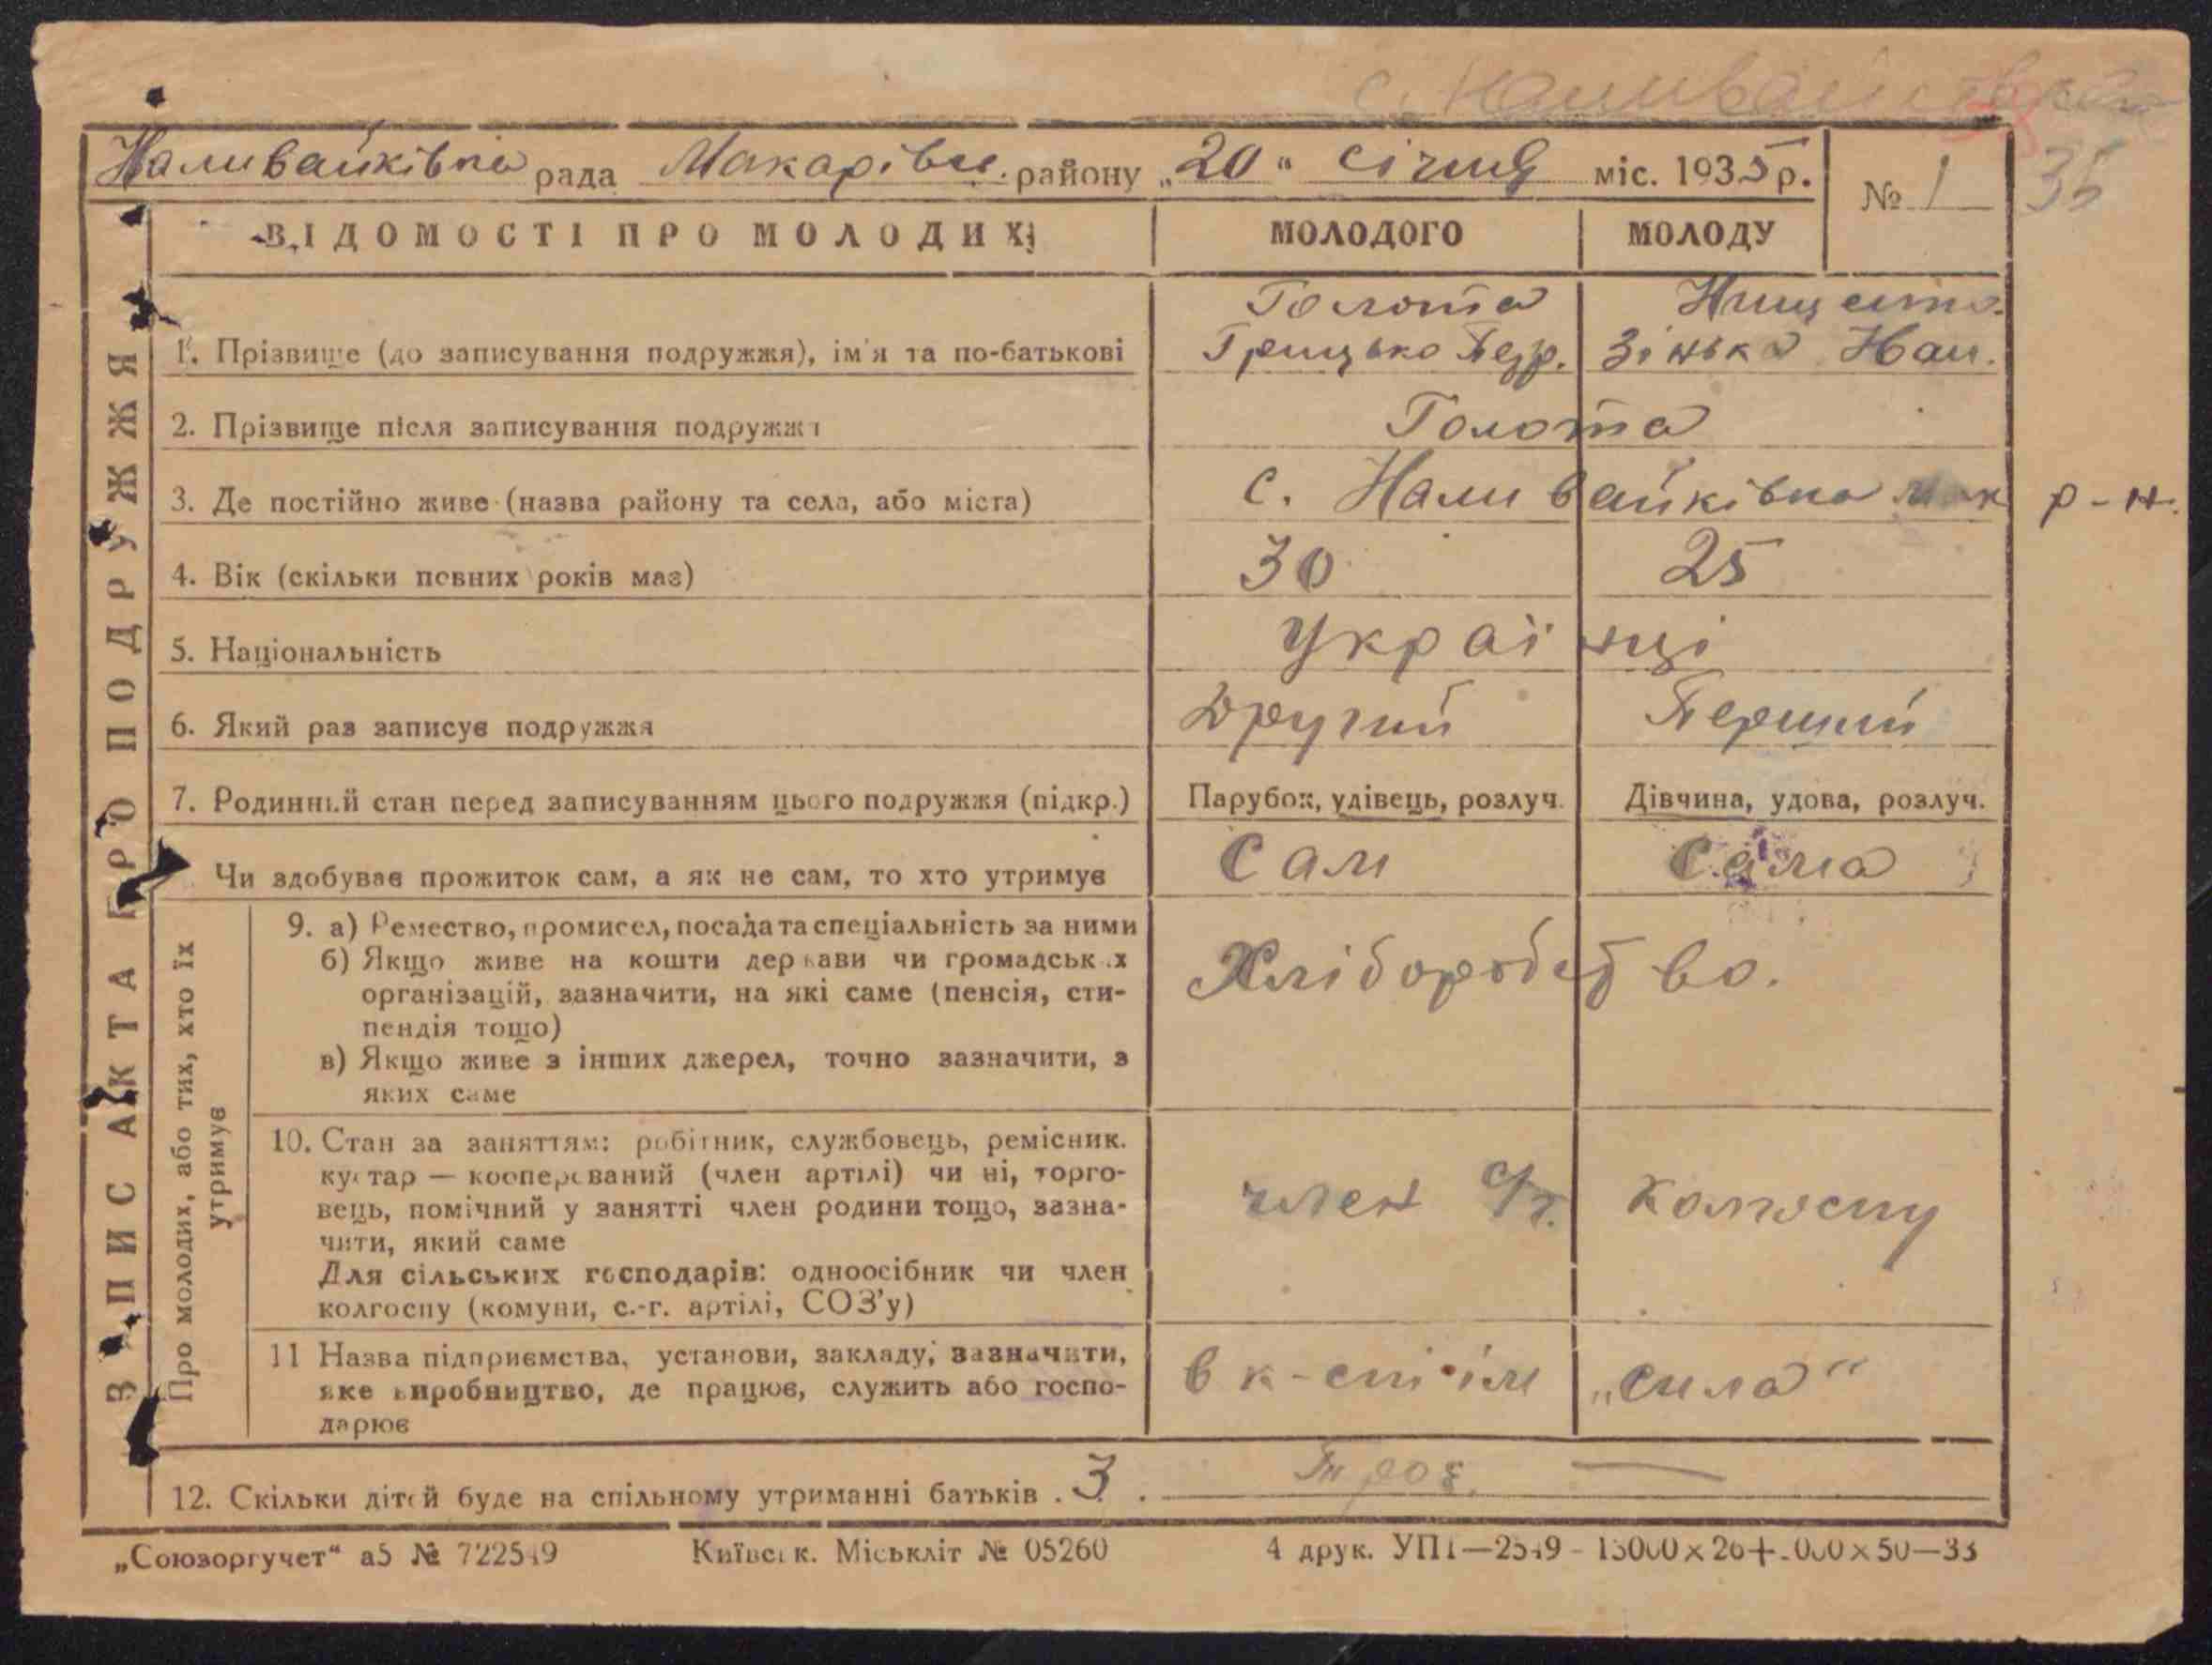 с. Наливайківка
35
Наливайківка рада Макарівс. району „20“ січня міс. 1935 р. № 1
ВІДОМОСТІ ПРО МОЛОДИХ МОЛОДОГО МОЛОДУ
Голота
1. Прізвище (до записування подружжя), ім'я та по-батькові Грицько Педр. Зінька
2. Прізвище після записування подружжя Голота
3. Де постійно живе (назва району та села, або міста) с. Наливайківка Мак р-н.
4. Вік (скільки повних років має) 30 25
5. Національність Українці
6. Який раз записує подружжя Другий Перший
7. Родинний стан перед записуванням цього подружжя (підкр.) Парубок, удівець, розлуч. Дівчина, удова, розлуч.
Чи здобуває прожиток сам, а як не сам, то хто утримує Сам Сама
9. а) Ремество, промисел, посада та спеціальність за ними
б) Якщо живе на кошти держави чи громадських Хліборобство.
організацій, зазначити, на які саме (пенсія, сти-
пендія тощо)
в) Якщо живе з інших джерел, точно зазначити, з
яких саме
10. Стан за заняттям: робітник, службовець, ремісник.
кустар — кооперований (член артілі) чи ні, торго-
вець, помічний у занятті член родини тощо, зазна- член колгоспу
чити, який саме
Для сільських господарів: одноосібник чи член
колгоспу (комуни, с.-г. артілі, СОЗ'у)
11 Назва підприємства, установи, закладу, зазначити,
яке виробництво, де працює, служить або госпо- в к-спі ім „сила“
дарює
12. Скільки дітей буде на спільному утриманні батьків . 3 . Троє. —
ЗАПИС АКТА ПРО ПОДРУЖЖЯ
Про молодих, або тих, хто їх
утримує
„Союзоргучет“ а5 № 722549 Київськ. Міськліт № 05260 4 друк. УПП—2549